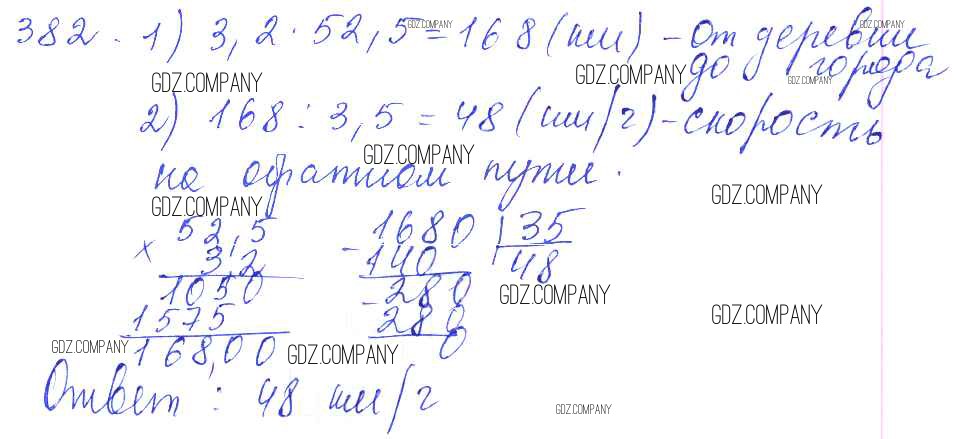 382. 1) 3,2 · 52,5 = 168 (км) – от деревни
до города
2) 168 : 3,5 = 48 (км/ч) – скорость
на обратном пути.
× 52,5
3,2
1050
1575
168,00
- 1680 | 35
140 48
- 280
280
0
Ответ: 48 км/ч
GDZ.COMPANY
GDZ.COMPANY
GDZ.COMPANY
GDZ.COMPANY
GDZ.COMPANY
GDZ.COMPANY
GDZ.COMPANY
GDZ.COMPANY
GDZ.COMPANY
GDZ.COMPANY
GDZ.COMPANY
GDZ.COMPANY
GDZ.COMPANY
GDZ.COMPANY